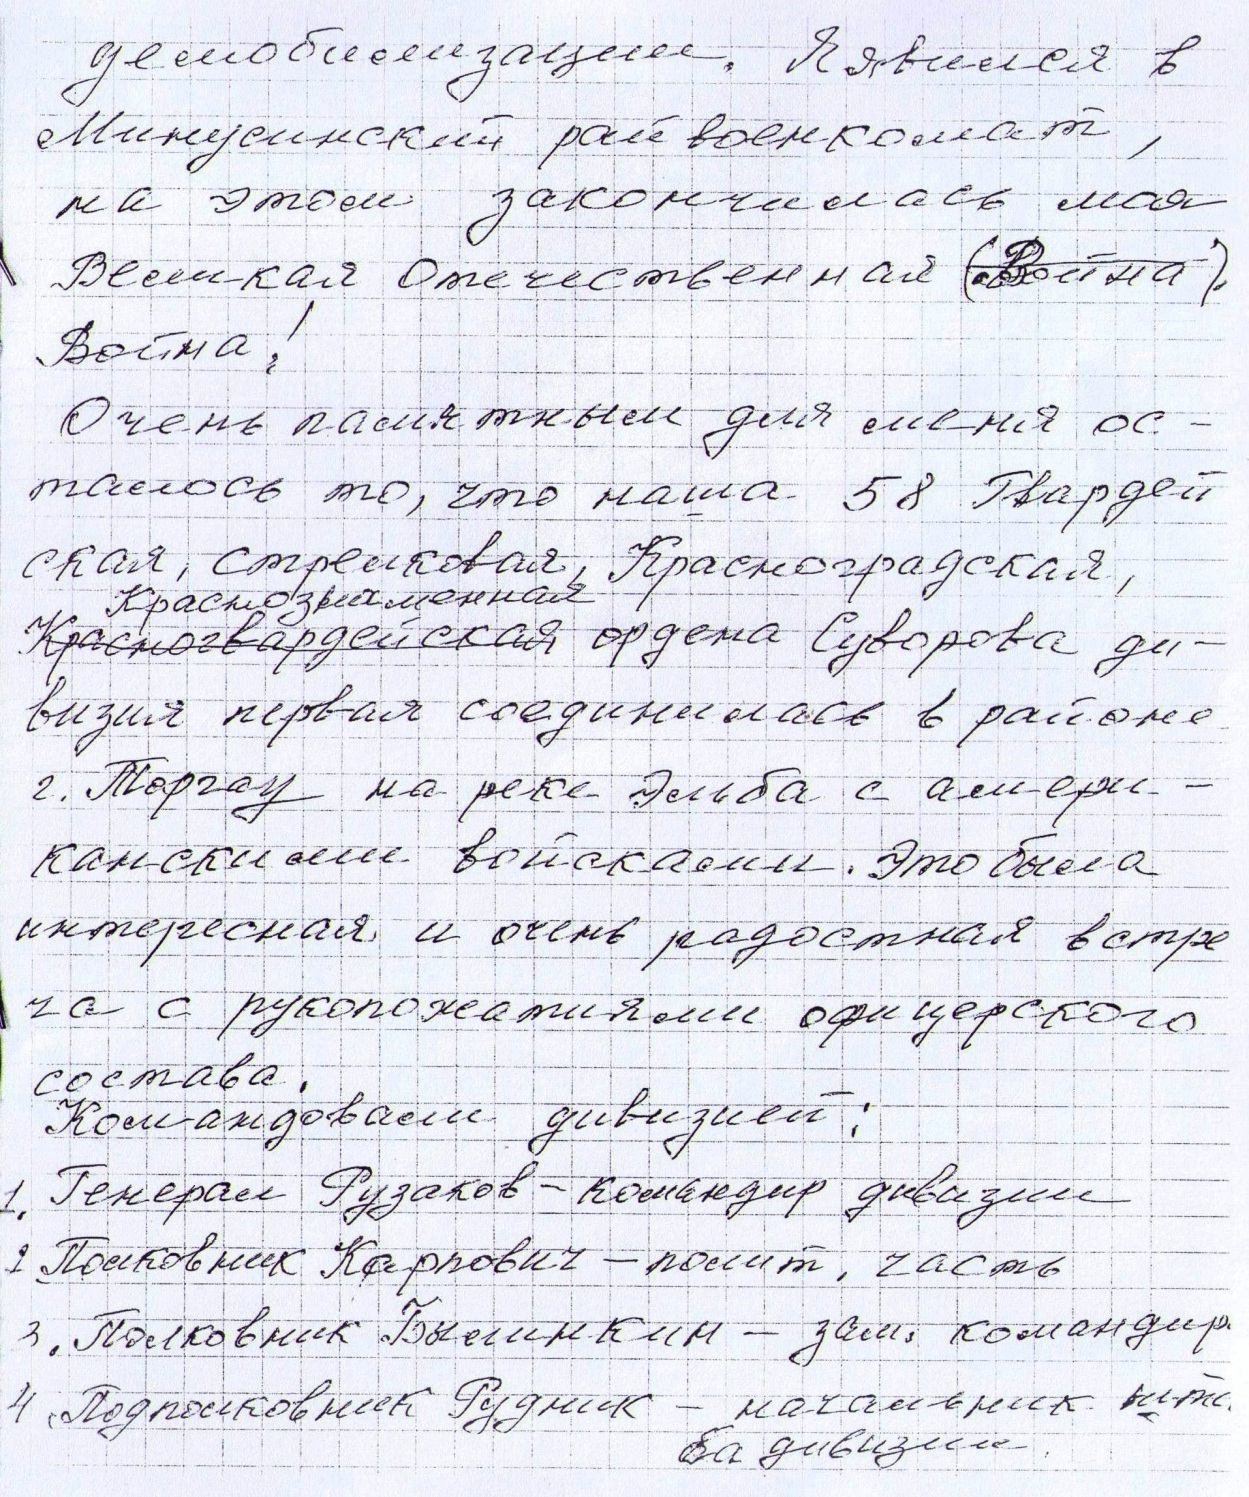 демобилизации. Я явился в
Минусинский райвоенкомат,
на этом закончилась моя
Великая Отечественная (Война).
Война!
Очень памятным для меня ос-
талось то, что наша 58 Гвардей
ская, стрелковая, Красноградская,
Краснознаменная
Красногвардейская ордена Суворова ди-
визия первая соединилась в районе
г. Торгау на реке Эльба с амери-
канскими войсками. Это была
интересная и очень радостная встре
ча с рукопожатиями офицерского
состава.
Командовали дивизией:
1. Генерал Рузаков – командир дивизии
2 Полковник Карпович – полит. часть
3. Полковник Былинкин – зам. командир
4. Подполковник Рудник – начальник шта
ба дивизии.